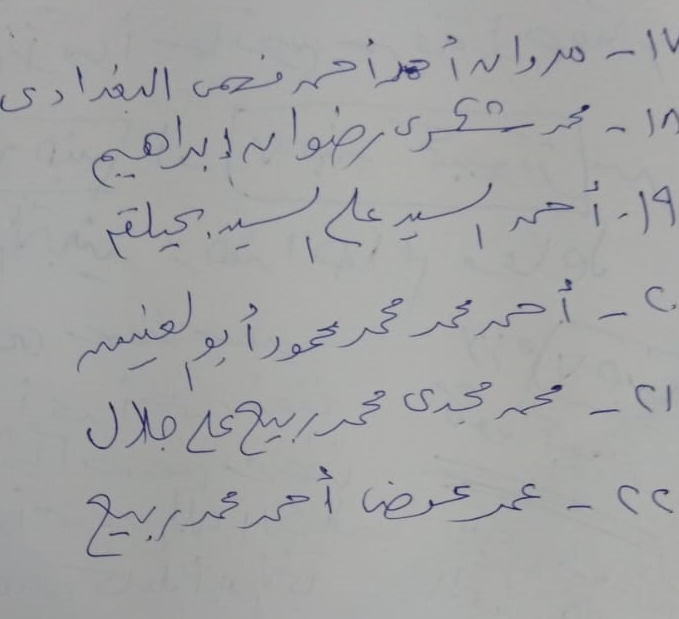 ١٧ - مروان أحمد أحمد فهمى البغدادى
١٨ - محمد شكرى رضوان إبراهيم
١٩ - أحمد السيد على السيد
٢٠ - أحمد محمد محمد محمود أبو العنين
٢١ - محمد مجدى محمد ربيع على جلال
٢٢ - عمر عوض أحمد محمد ربيع